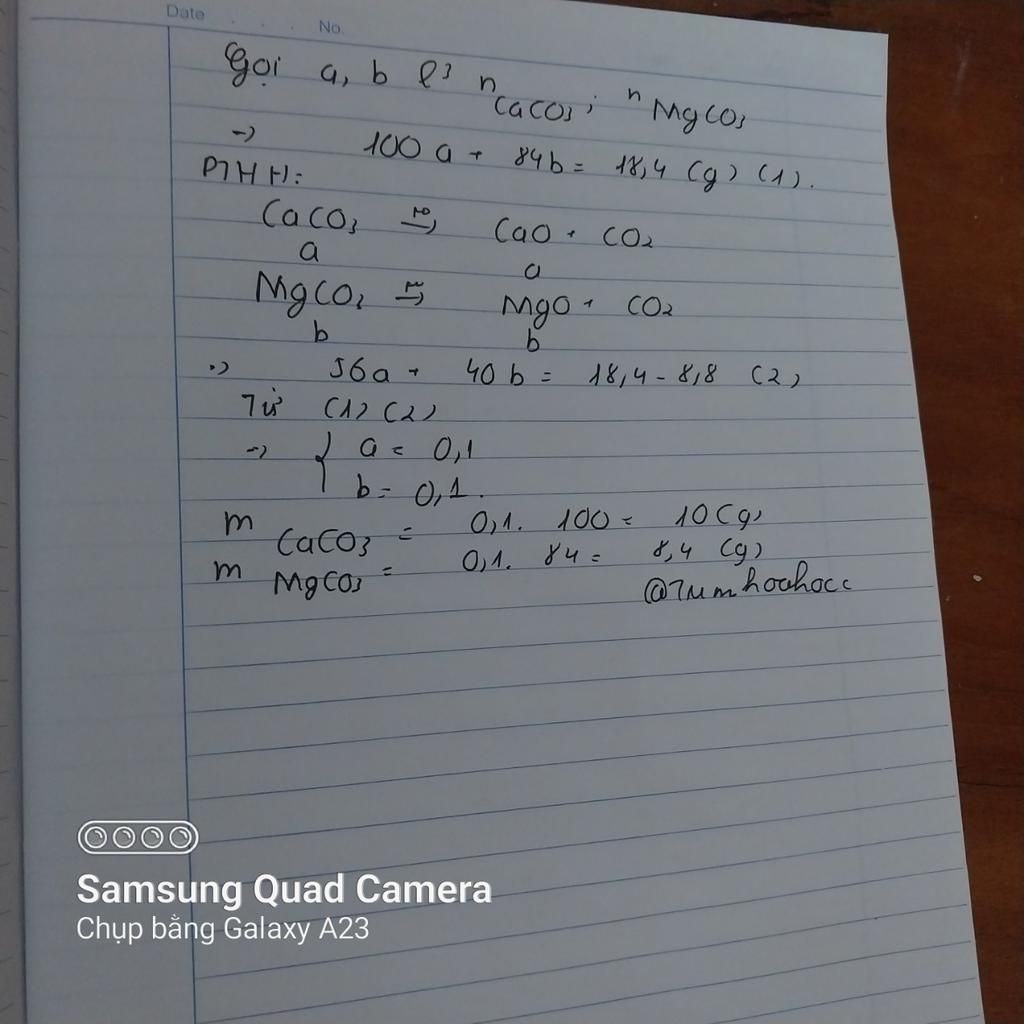 Date No.
Gọi a, b l³ nCaCO3; nMgCO3
-> 100a + 84b = 18,4 (g) (1).
PTHH:
CaCO3 t° -> CaO + CO2
a a
MgCO3 t° -> MgO + CO2
b b
-> 56a + 40b = 18,4 - 8,8 (2)
Từ (1) (2)
-> { a = 0,1
b = 0,1.
mCaCO3 = 0,1. 100 = 10 (g)
mMgCO3 = 0,1. 84 = 8,4 (g)
@Tumhoahocc
Samsung Quad Camera
Chụp bằng Galaxy A23